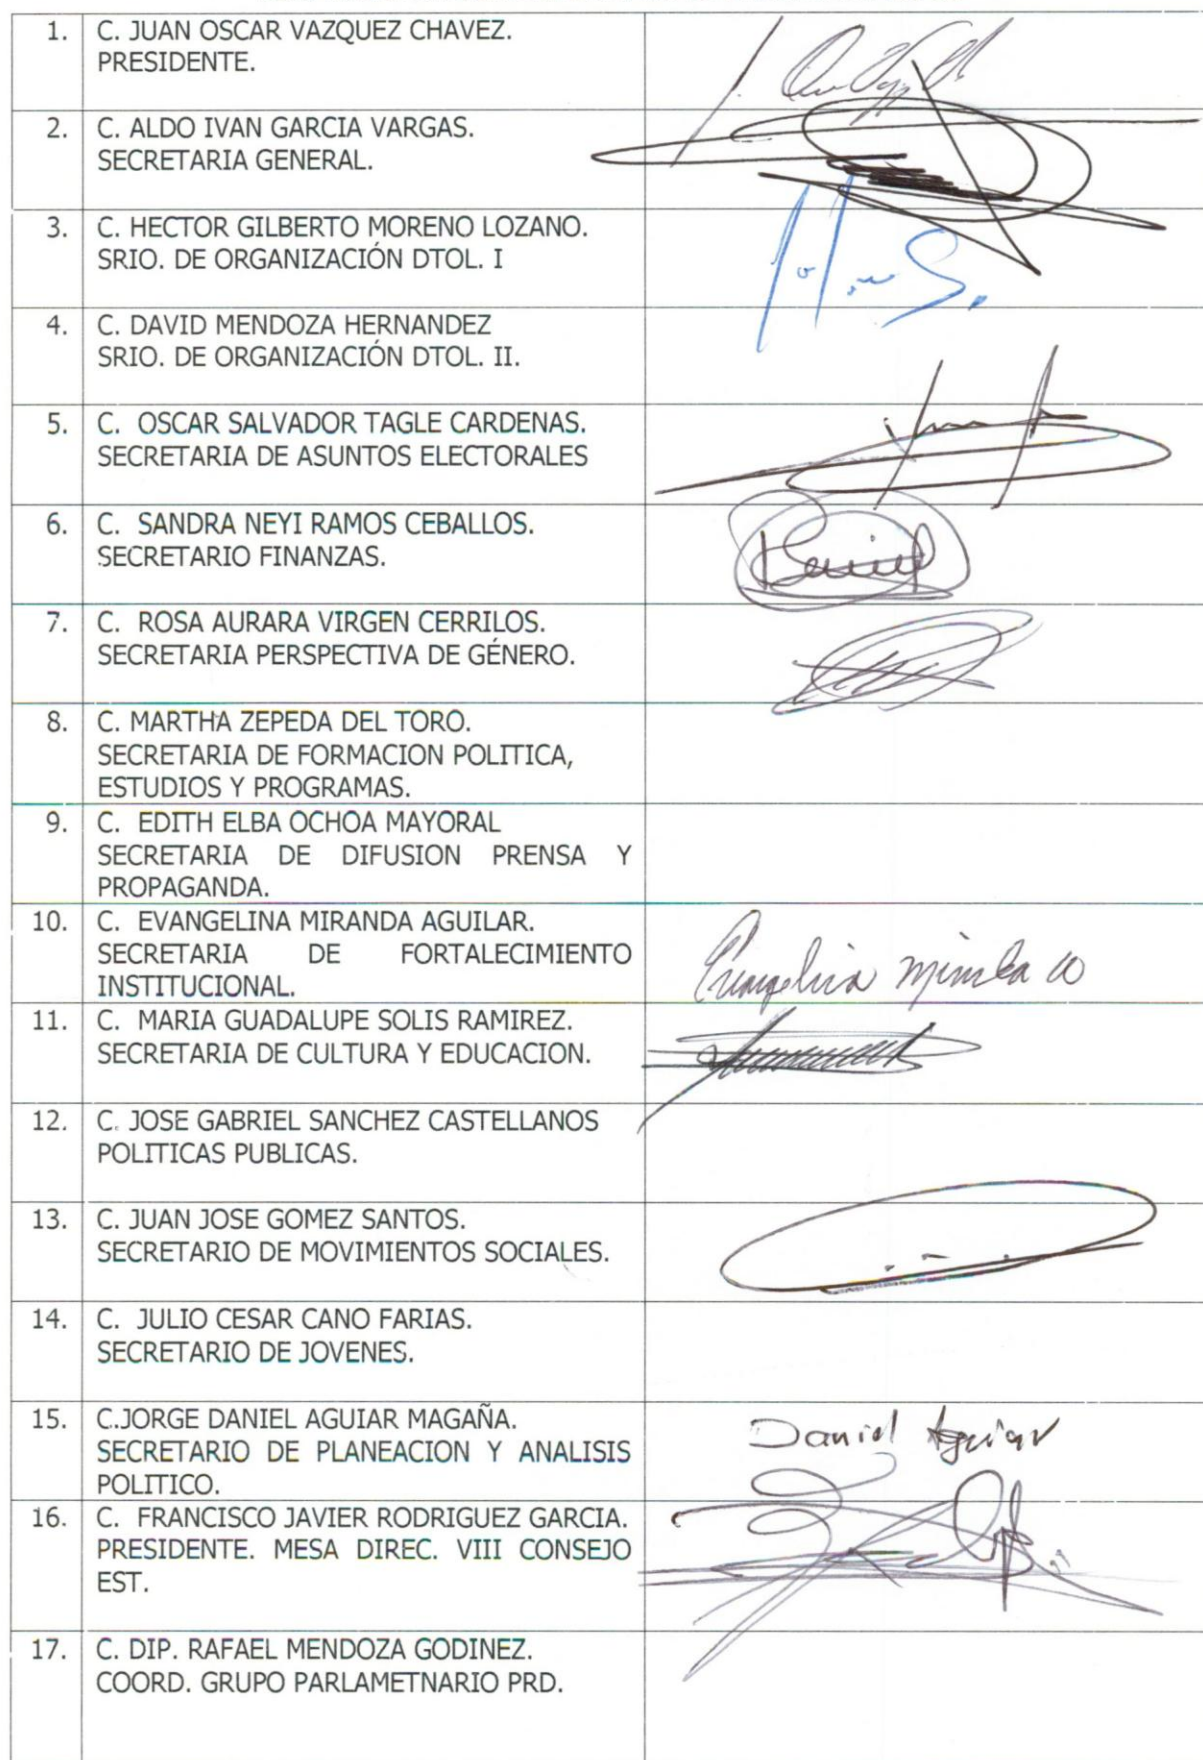 1. C. JUAN OSCAR VAZQUEZ CHAVEZ.
PRESIDENTE.
2. C. ALDO IVAN GARCIA VARGAS.
SECRETARIA GENERAL.
3. C. HECTOR GILBERTO MORENO LOZANO.
SRIO. DE ORGANIZACIÓN DTOL. I
4. C. DAVID MENDOZA HERNANDEZ
SRIO. DE ORGANIZACIÓN DTOL. II.
5. C. OSCAR SALVADOR TAGLE CARDENAS.
SECRETARIA DE ASUNTOS ELECTORALES
6. C. SANDRA NEYI RAMOS CEBALLOS.
SECRETARIO FINANZAS.
7. C. ROSA AURARA VIRGEN CERRILOS.
SECRETARIA PERSPECTIVA DE GÉNERO.
8. C. MARTHA ZEPEDA DEL TORO.
SECRETARIA DE FORMACION POLITICA,
ESTUDIOS Y PROGRAMAS.
9. C. EDITH ELBA OCHOA MAYORAL
SECRETARIA DE DIFUSION PRENSA Y
PROPAGANDA.
10. C. EVANGELINA MIRANDA AGUILAR.
SECRETARIA DE FORTALECIMIENTO
INSTITUCIONAL.
11. C. MARIA GUADALUPE SOLIS RAMIREZ.
SECRETARIA DE CULTURA Y EDUCACION.
12. C. JOSE GABRIEL SANCHEZ CASTELLANOS
POLITICAS PUBLICAS.
13. C. JUAN JOSE GOMEZ SANTOS.
SECRETARIO DE MOVIMIENTOS SOCIALES.
14. C. JULIO CESAR CANO FARIAS.
SECRETARIO DE JOVENES.
15. C.JORGE DANIEL AGUIAR MAGAÑA.
SECRETARIO DE PLANEACION Y ANALISIS
POLITICO.
Daniel Aguiar
16. C. FRANCISCO JAVIER RODRIGUEZ GARCIA.
PRESIDENTE. MESA DIREC. VIII CONSEJO
EST.
17. C. DIP. RAFAEL MENDOZA GODINEZ.
COORD. GRUPO PARLAMETNARIO PRD.